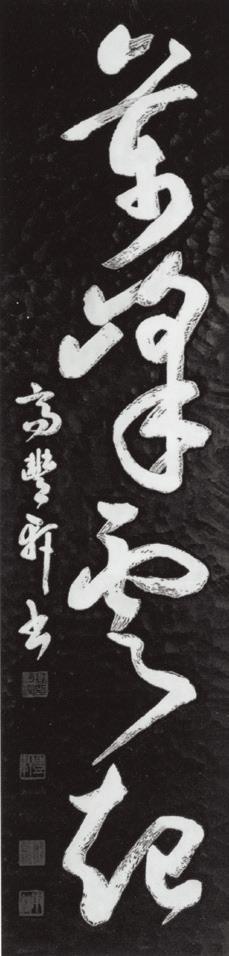 萬峰雲起
高豐軒書